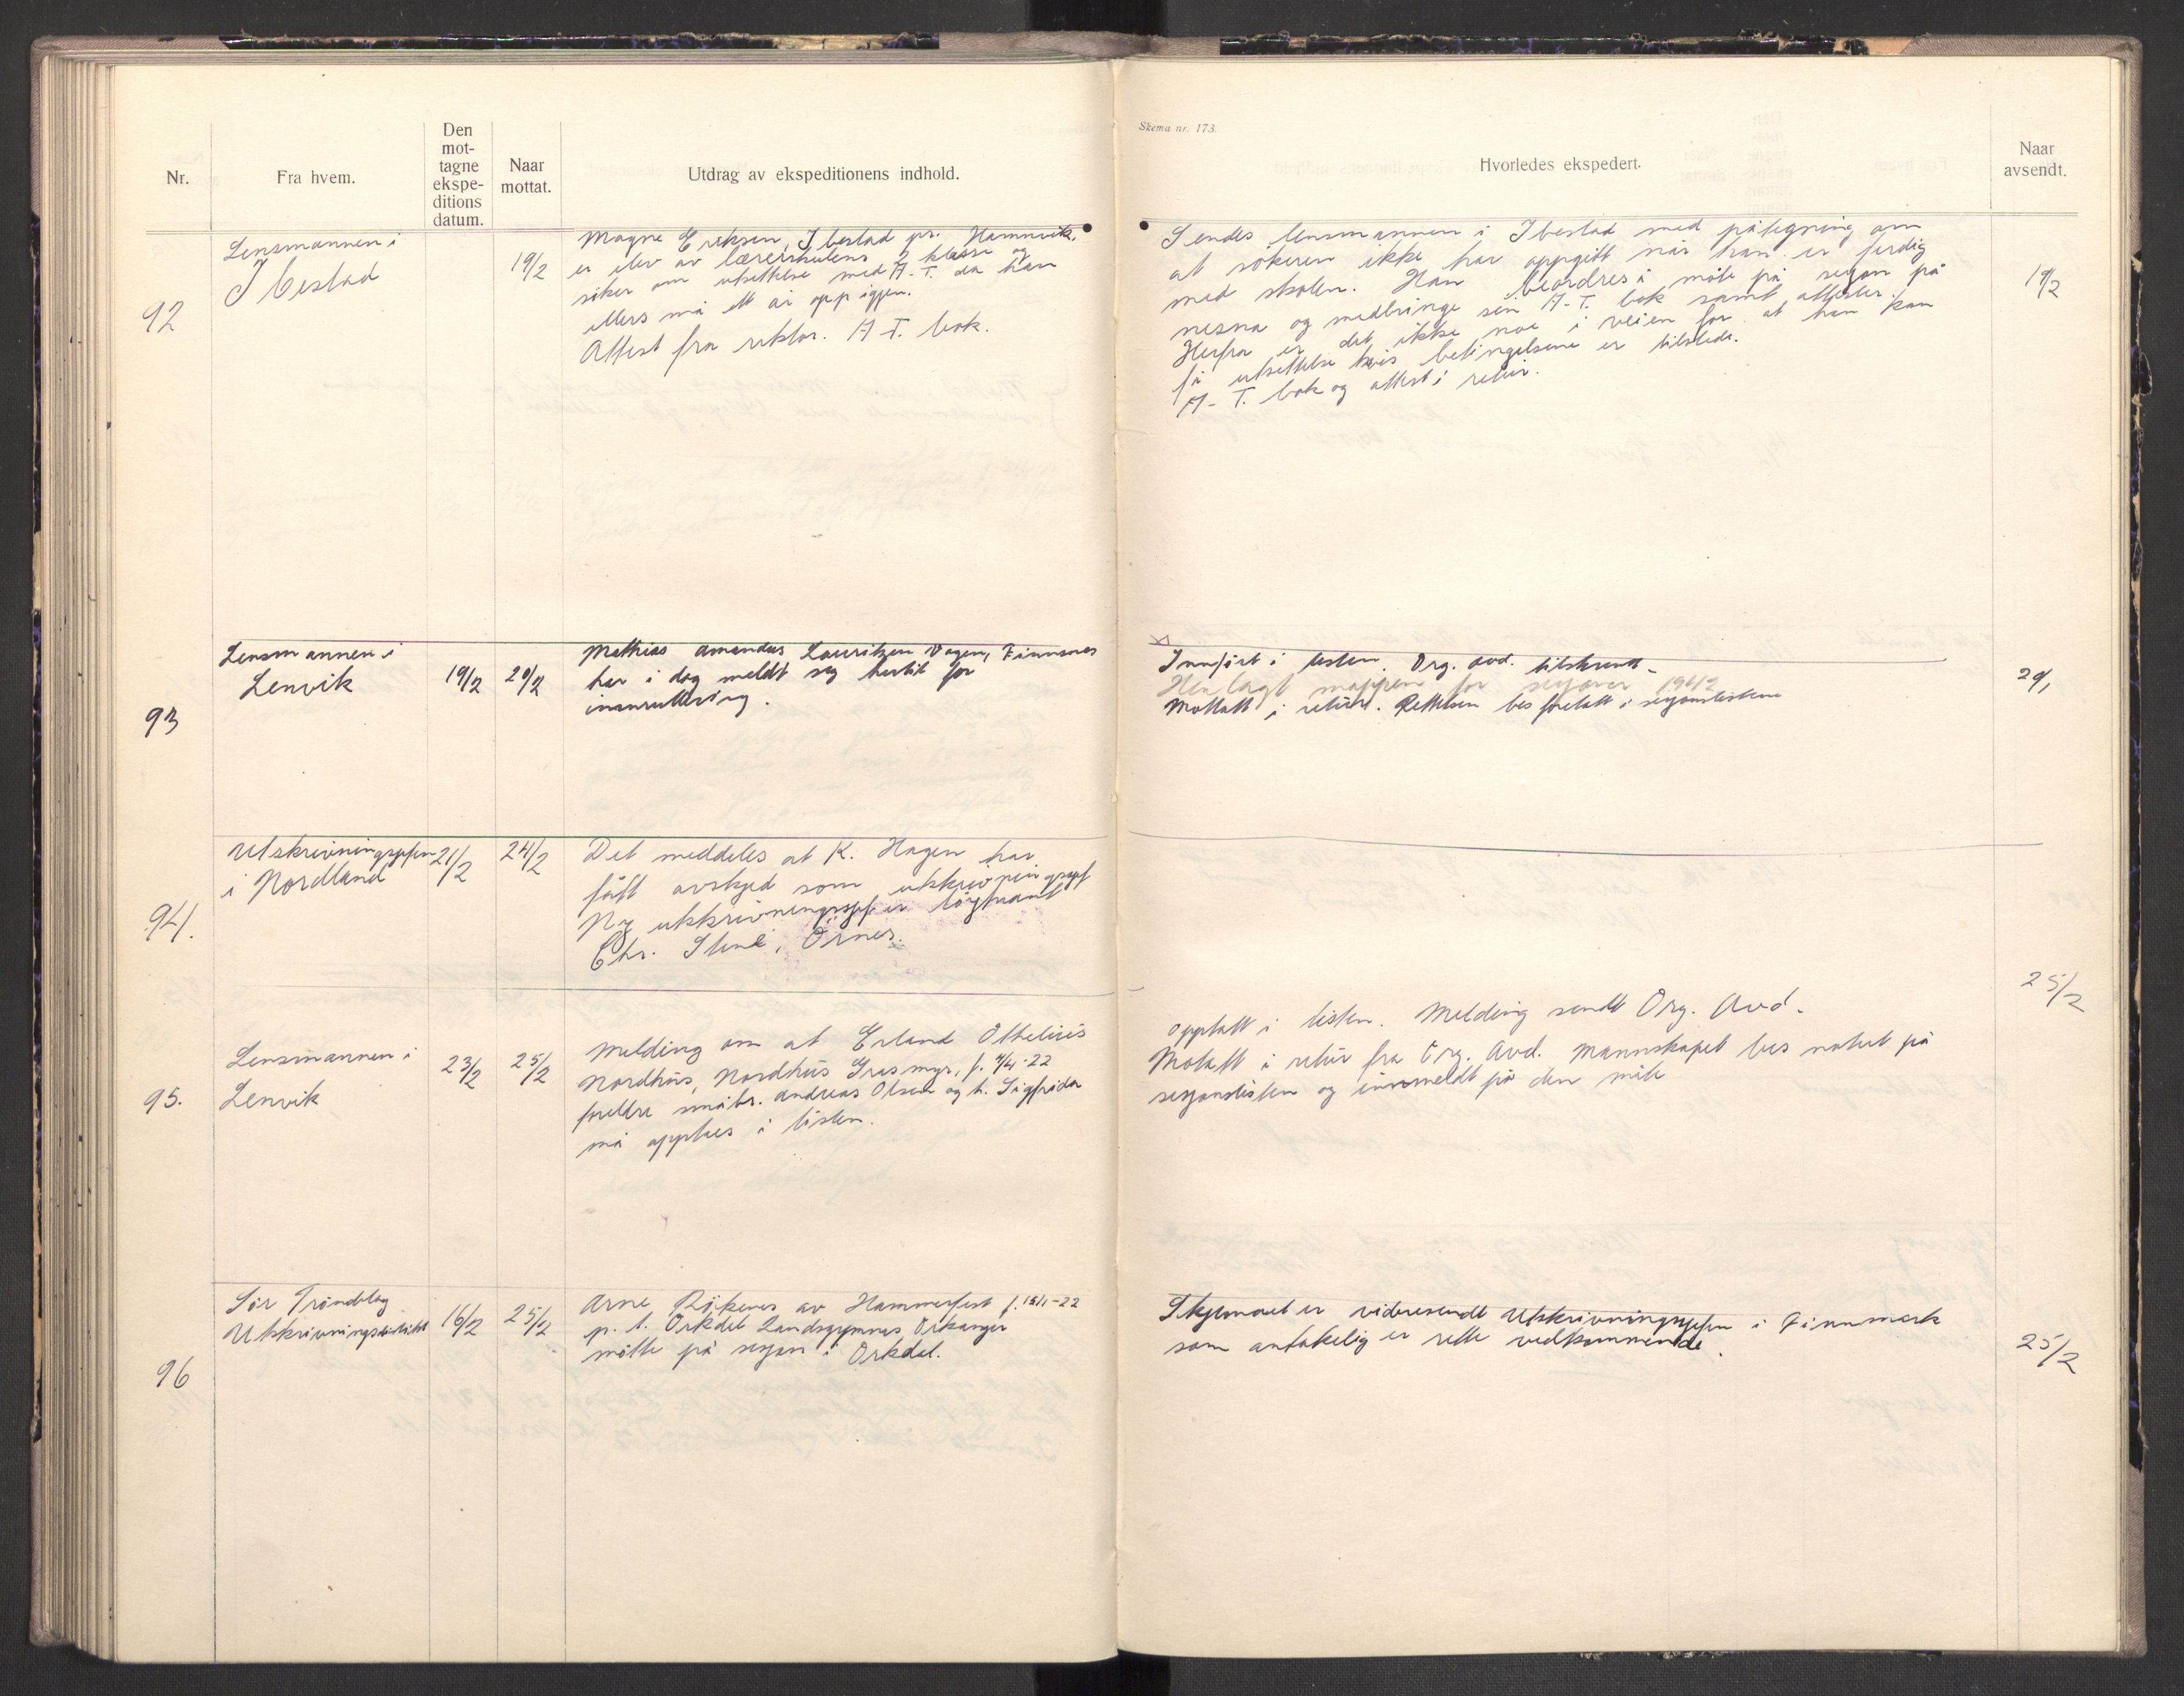 Nr.
Fra hvem.
Den
mot-
tagne
ekspe-
ditions
datum.
Naar
mottat.
Utdrag av ekspeditionens indhold.
Skema nr. 173.
Hvorledes ekspedert.
Naar
avsendt.
92
Lensmannen i
Ibestad
19/2
Magne Eriksen, Ibestad pr. Hamnvik,
er elev av lærerskulens 2 klasse og
söker om utsettelse med A-T. da han
ellers må ett år opp igjen.
Attest fra rektor. A-T. bok.
Sendes lensmannen i Ibestad med påtegning om
at sökeren ikke har oppgitt når han er ferdig
med skolen. Han beordres å möte på sesjon på
nesna og medbringe sin A-T. bok samt attester.
Herfra er det ikke noe i veien for at han kan
få utsettelse hvis betingelsene er tilstede.
A-T. bok og attest i retur.
19/2
93
Lensmannen i
Lenvik
19/2
20/2
Mathias Amandus Lauritzen Vagen, Finnsnes
har i dag meldt seg hertil for
innrullering.
Innfört i listen. Org. avd. tilskrevet
Henlagt mappen for sesjoner 1942
Mottatt i retur. Rettelsen bes foretatt i sesjonslistene
94.
Utskrivningssjefen
i Nordland
21/2
24/2
Det meddeles at K. Hagen har
fått avskjed som utskrivningssjef
Ny utskrivningssjef er löytnant
Chr. , Örnes.
95.
Lensmannen i
Lenvik
23/2
25/2
Melding om at Erland Othelius
Nordhus, Nordhus Gresmyr, f. 4/4-22
forelre småbr. Andreas Olsen og h. Sigfrida
må opptas i listen.
Opptatt i listen. Melding sendt Org. Avd.
Motatt i retur fra Org. Avd. Mannskapet bes notert på
sesjonslisten og innmeldt på den måte
25/2
96
Sör Tröndelag
Utskrivningsdistrikt
16/2
25/2
Arne Rökenes av Hammerfest f. 15/1-22
p.t. Orkdal Landsgymnas, Orkanger
mötte på sesjon i Orkdal.
Skjemaet er videresendt Utskrivningssjefen i Finnmark
som antakelig er rette vedkommende.
25/2